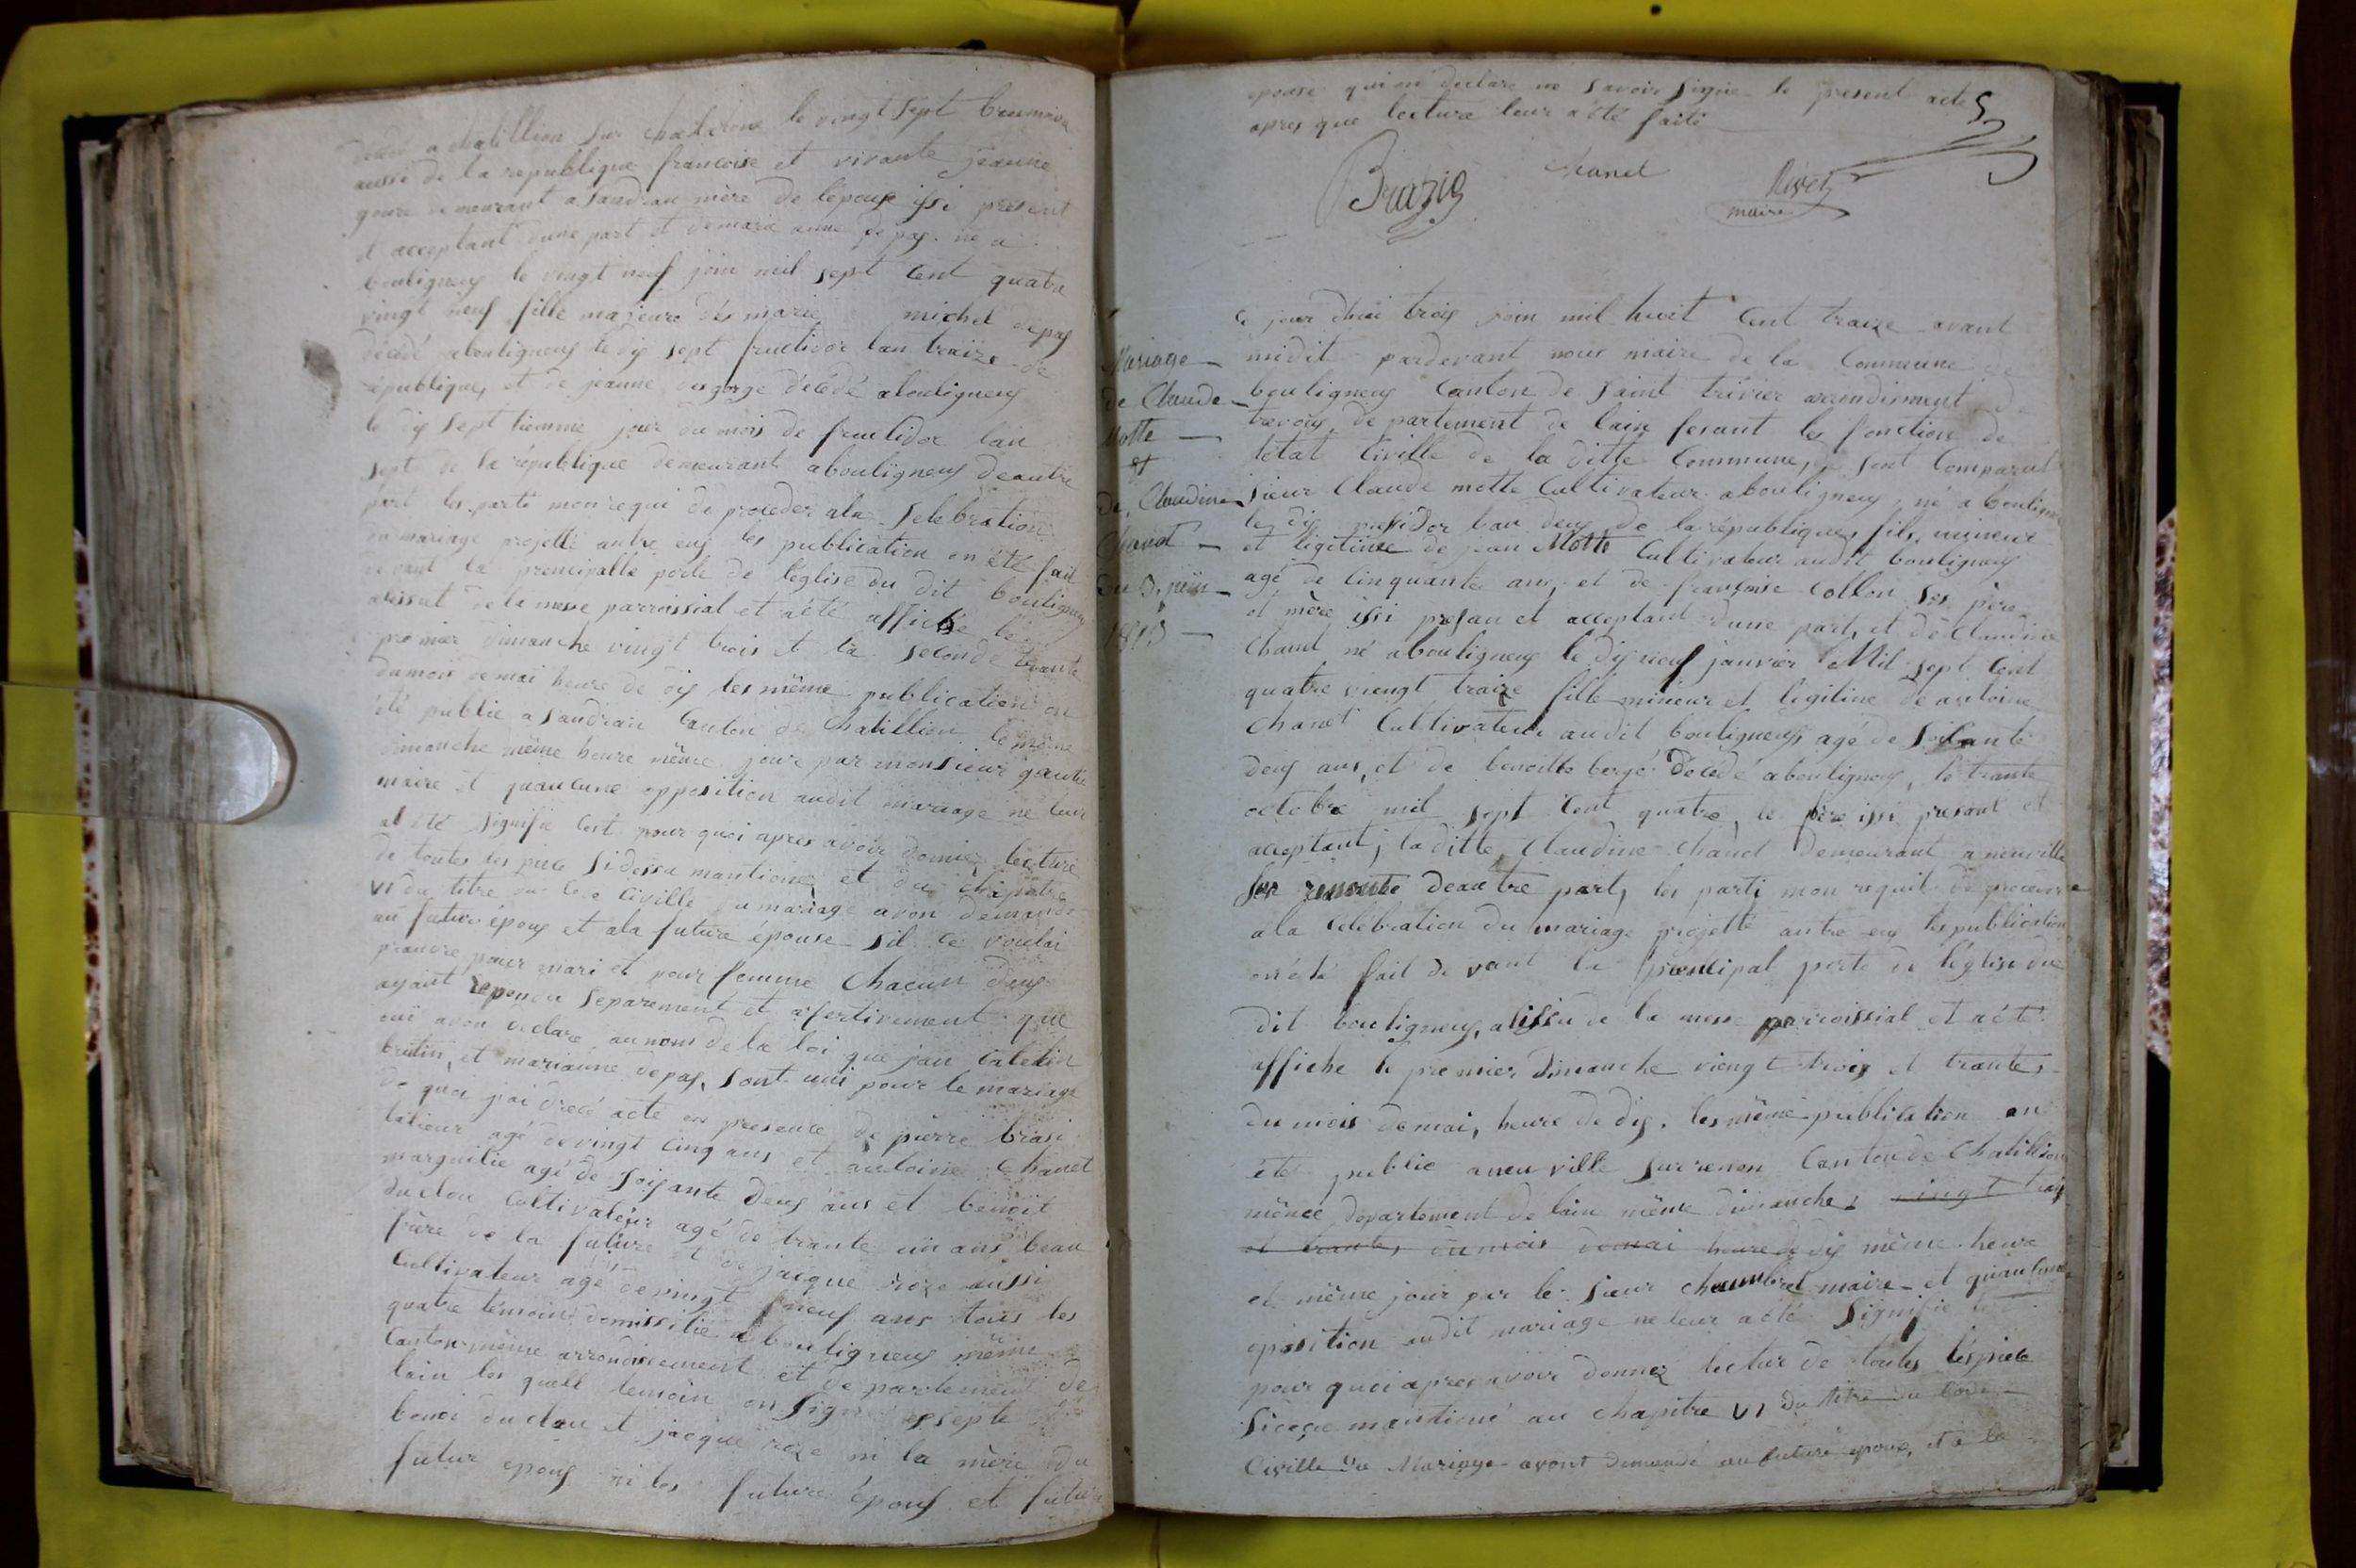 a chatillion sur chalarone le vingt sept brumaire
de la republique francoise et vivante jeanne
demeurant a Sandran mère de lepoux issi present
et acceptant dune part et de marie anne depas né a
bouligneux le vingt neuf join mil sept Cent quatre
vingt neuf fille majeure michel depas
décédé abouligneux le dis sept fructidor lan traize de
république, et de jeanne décédé abouligneux
le dis sept tiemme jour du mois de fructidor lan
sept de la république demeurant abouligneux deautre
part les parti mon requi de proceder ala Selebration
du mariage projetté antre eus les publication on été fait
devant la principalle porte de l'eglise du dit bouligneux
alissut de la messe parroissial et a été affiché le
premier dimanche vingt trois et la seconde trante
du mois de mai heure de dis les même publication on
été publié a Sandran Canton de Chatillion le même
dimanche même heure même jour par monsieur
maire et quaucune opposition audit mariage ne leur
at été signifié cest pour quoi apres avoir donné lecture
de toutes les piece sidessu mantioné et du chapitre
VI du titre du Code Civille du mariage avon demandé
au futur époux et ala future épouse sil ce voulai
prandre pour mari et pour femme Chacun deux
ayant repondu separement et afertivement que
oui avon declare au nom de la loi que jan
brutin et marianne depas, sont uni pour le mariage
de quoi jai dressé acte en presence de pierre brasi
agé de vingt cinq ans et antoine Chanet
marguilié agé de soisante deux ans et benoit
duclou Coltivateur agé de trante un ans beau
frère de la future et de jacque roze aussi
Cultivateur agé de vingt neuf ans tous les
quatre témoins domissilié a bouligneux même
Canton même arrondissement et departement de
lain les quell temoin on signé exsepté
benoi duclou et jacque roze ni la mère du
futur epoux ni les future époux et future
epouse qui on declare ne savoir signie le present acte
apres que lecture leur a été faite
Brazig Chanel Rivet
maire
Mariage
de Claude
Motte
et
de Claudine
Chanet
du 3 juin
1813
Ce jour dhui trois join mil huit Cent traize avant
midit pardevant nous maire de la Commune de
bouligneux Canton de saint trivier arrondisment de
trevoux, de partement de lain fesant les fonction de
letat Civille de la ditte Commune, sont Comparut
sieur Claude motte Cultivateur abouligneux né a bouligneux
le dis messidor lan deux de la république, fils mineur
et ligitime de jean Motte Cultivateur audit bouligneux
agé de Cinquante ans, et de françoise Collon ses père
et mère issi presan et acceptant dune part, et de Claudine
Chanet né abouligneux le dis neuf janvier Mil sept Cent
quatre viengt traize fille mineur et ligitime de antoine
Chanet Cultivateur audit bouligneux agé de soisante
deux ans, et de benoitte bergé décédé abouligneux, le trante
octobre mil sept Cent quatre, le père issi presant et
acceptant, laditte Claudine Chanet demeurant a neuville
sur renonte deautre part, les parti mon requit de proceder
a la Celebration du mariage projetté antre eux les publication
on été fait de vant la principal porte de l'église du
dit bouligneux, alissu de la messe parroissial et a été
affiche le premier dimanche viengt trois et trante,
du mois de mai, heure de dis. les même publication on
été publié a neuville sur renon Canton de Chatillion
même departement de lain même dimanche, vingt trois
et trante, du mois de mai heure de dis même heure
et même jour par le sieur Chambret maire et quaucune
oposition audit mariage ne leur a été signifie
pour quoi apres avoir donnez lecture de toutes les piece
mantioné au chapitre VI du titre du Code
Civille du Mariage avont demandé au future epoux, et a la